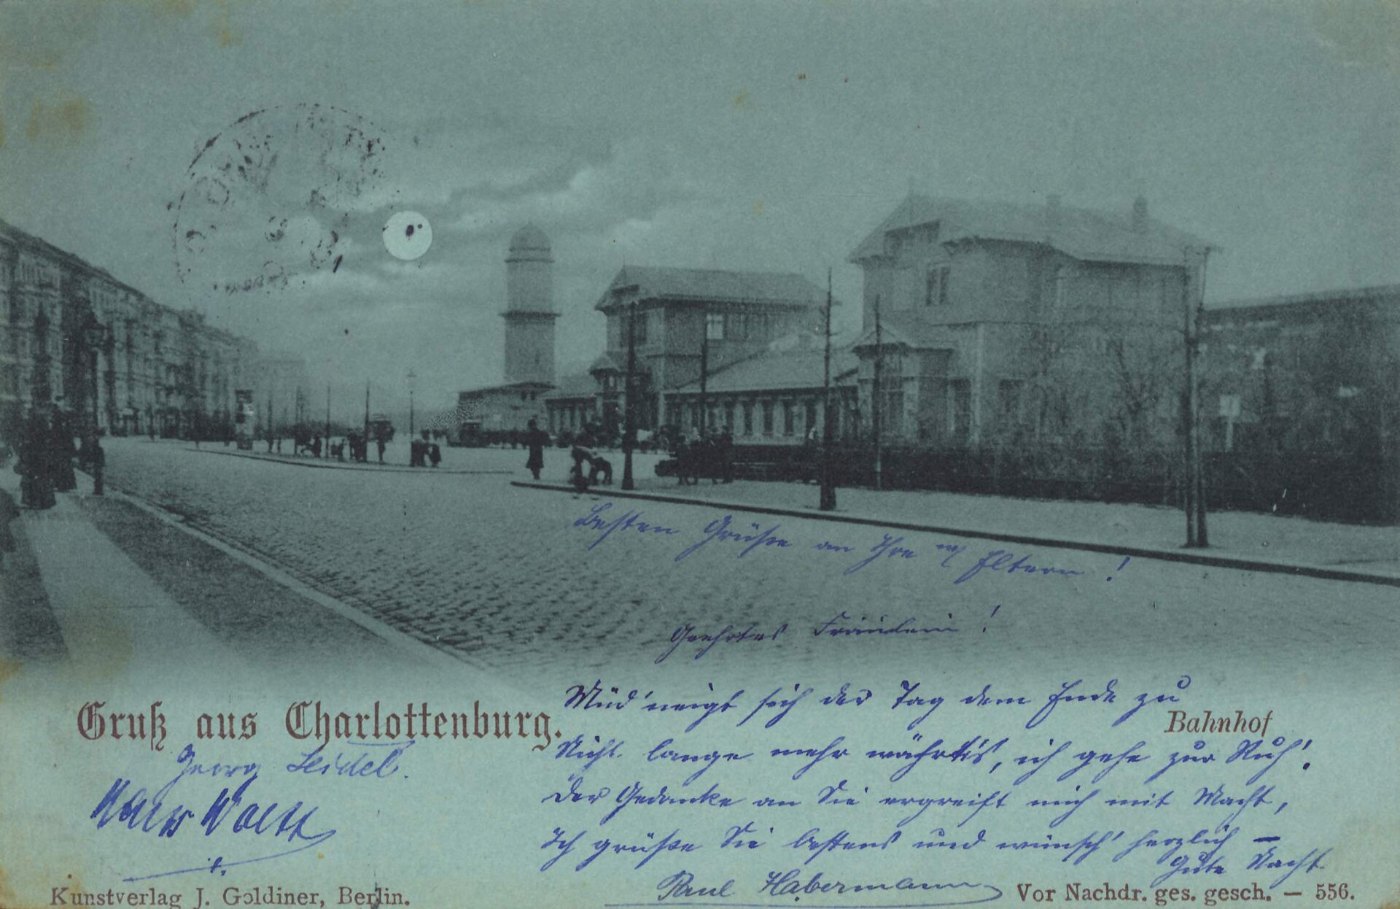 Besten Grüße an Ihre w/ Eltern!
Geehrtes Fräulein!
Müd' neigt sich der Tag dem Ende zu
Bahnhof
Gruß aus Charlottenburg.
Nicht lange mehr währt's, ich gehe zur Ruh'.
Georg Seidel.
Der Gedanke an Sie ergreift mich mit Macht,
Ich grüße Sie bestens und wünsch' herzlich —
Gute Nacht
Paul Habermann
Kunstverlag J. Goldiner, Berlin.
Vor Nachdr. ges. gesch. — 556.